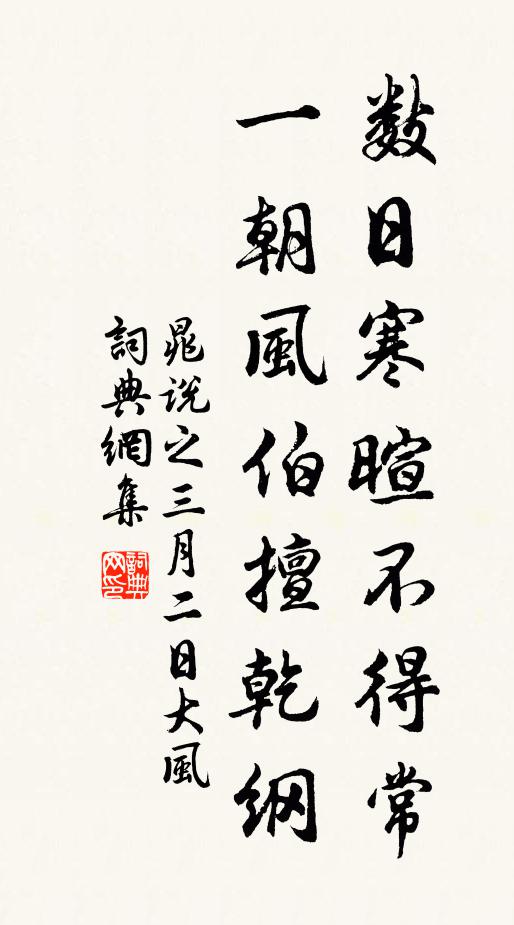 數日寒暄不得常
一朝風伯擅乾綱
晁說之三月二日大風
詞典網集
詞典网印